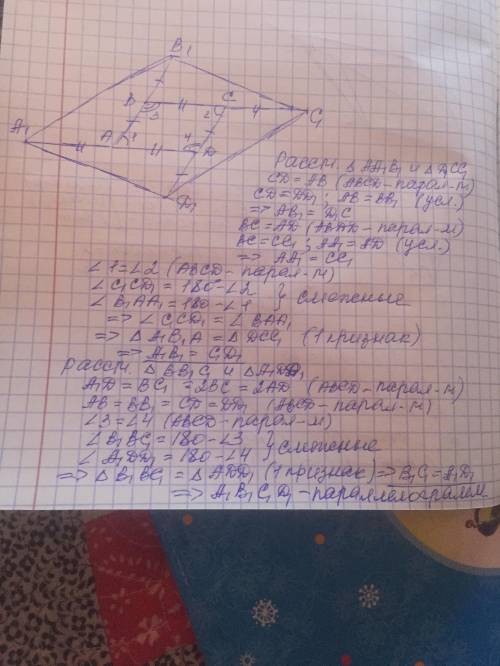 B₁
B
3
C
2
C₁
A₁
A
1
4
D
D₁
Рассм. △ AA₁B₁ и △ D₁CC₁
CD = AB (ABCD - парал-м)
CD = DD₁ ; AB = BB₁ (усл.)
=> AB₁ = D₁C
BC = AD (ABAD - парал-м)
BC = CC₁ ; AA₁ = AD (усл.)
=> AA₁ = CC₁
∠1 = ∠2 (ABCD - парал-м)
∠C₁CD₁ = 180 - ∠2
∠B₁AA₁ = 180 - ∠1 } смежные
=> ∠C₁CD₁ = ∠BAA₁
=> △ A₁B₁A = △ DCC₁ (1 признак)
=> A₁B₁ = C₁D₁
Рассм. △ BB₁C₁ и △ A₁DD₁
A₁D = BC₁ = 2BC = 2AD (ABCD - парал-м)
AB = BB₁ = CD = DD₁ (ABCD - парал-м)
∠3 = ∠4 (ABCD - парал-м)
∠B₁BC₁ = 180 - ∠3
∠A₁DD₁ = 180 - ∠4 } смежные
=> △ B₁BC₁ = △ A₁DD₁ (1 признак) => B₁C₁ = A₁D₁
=> A₁B₁C₁D₁ - параллелограмм